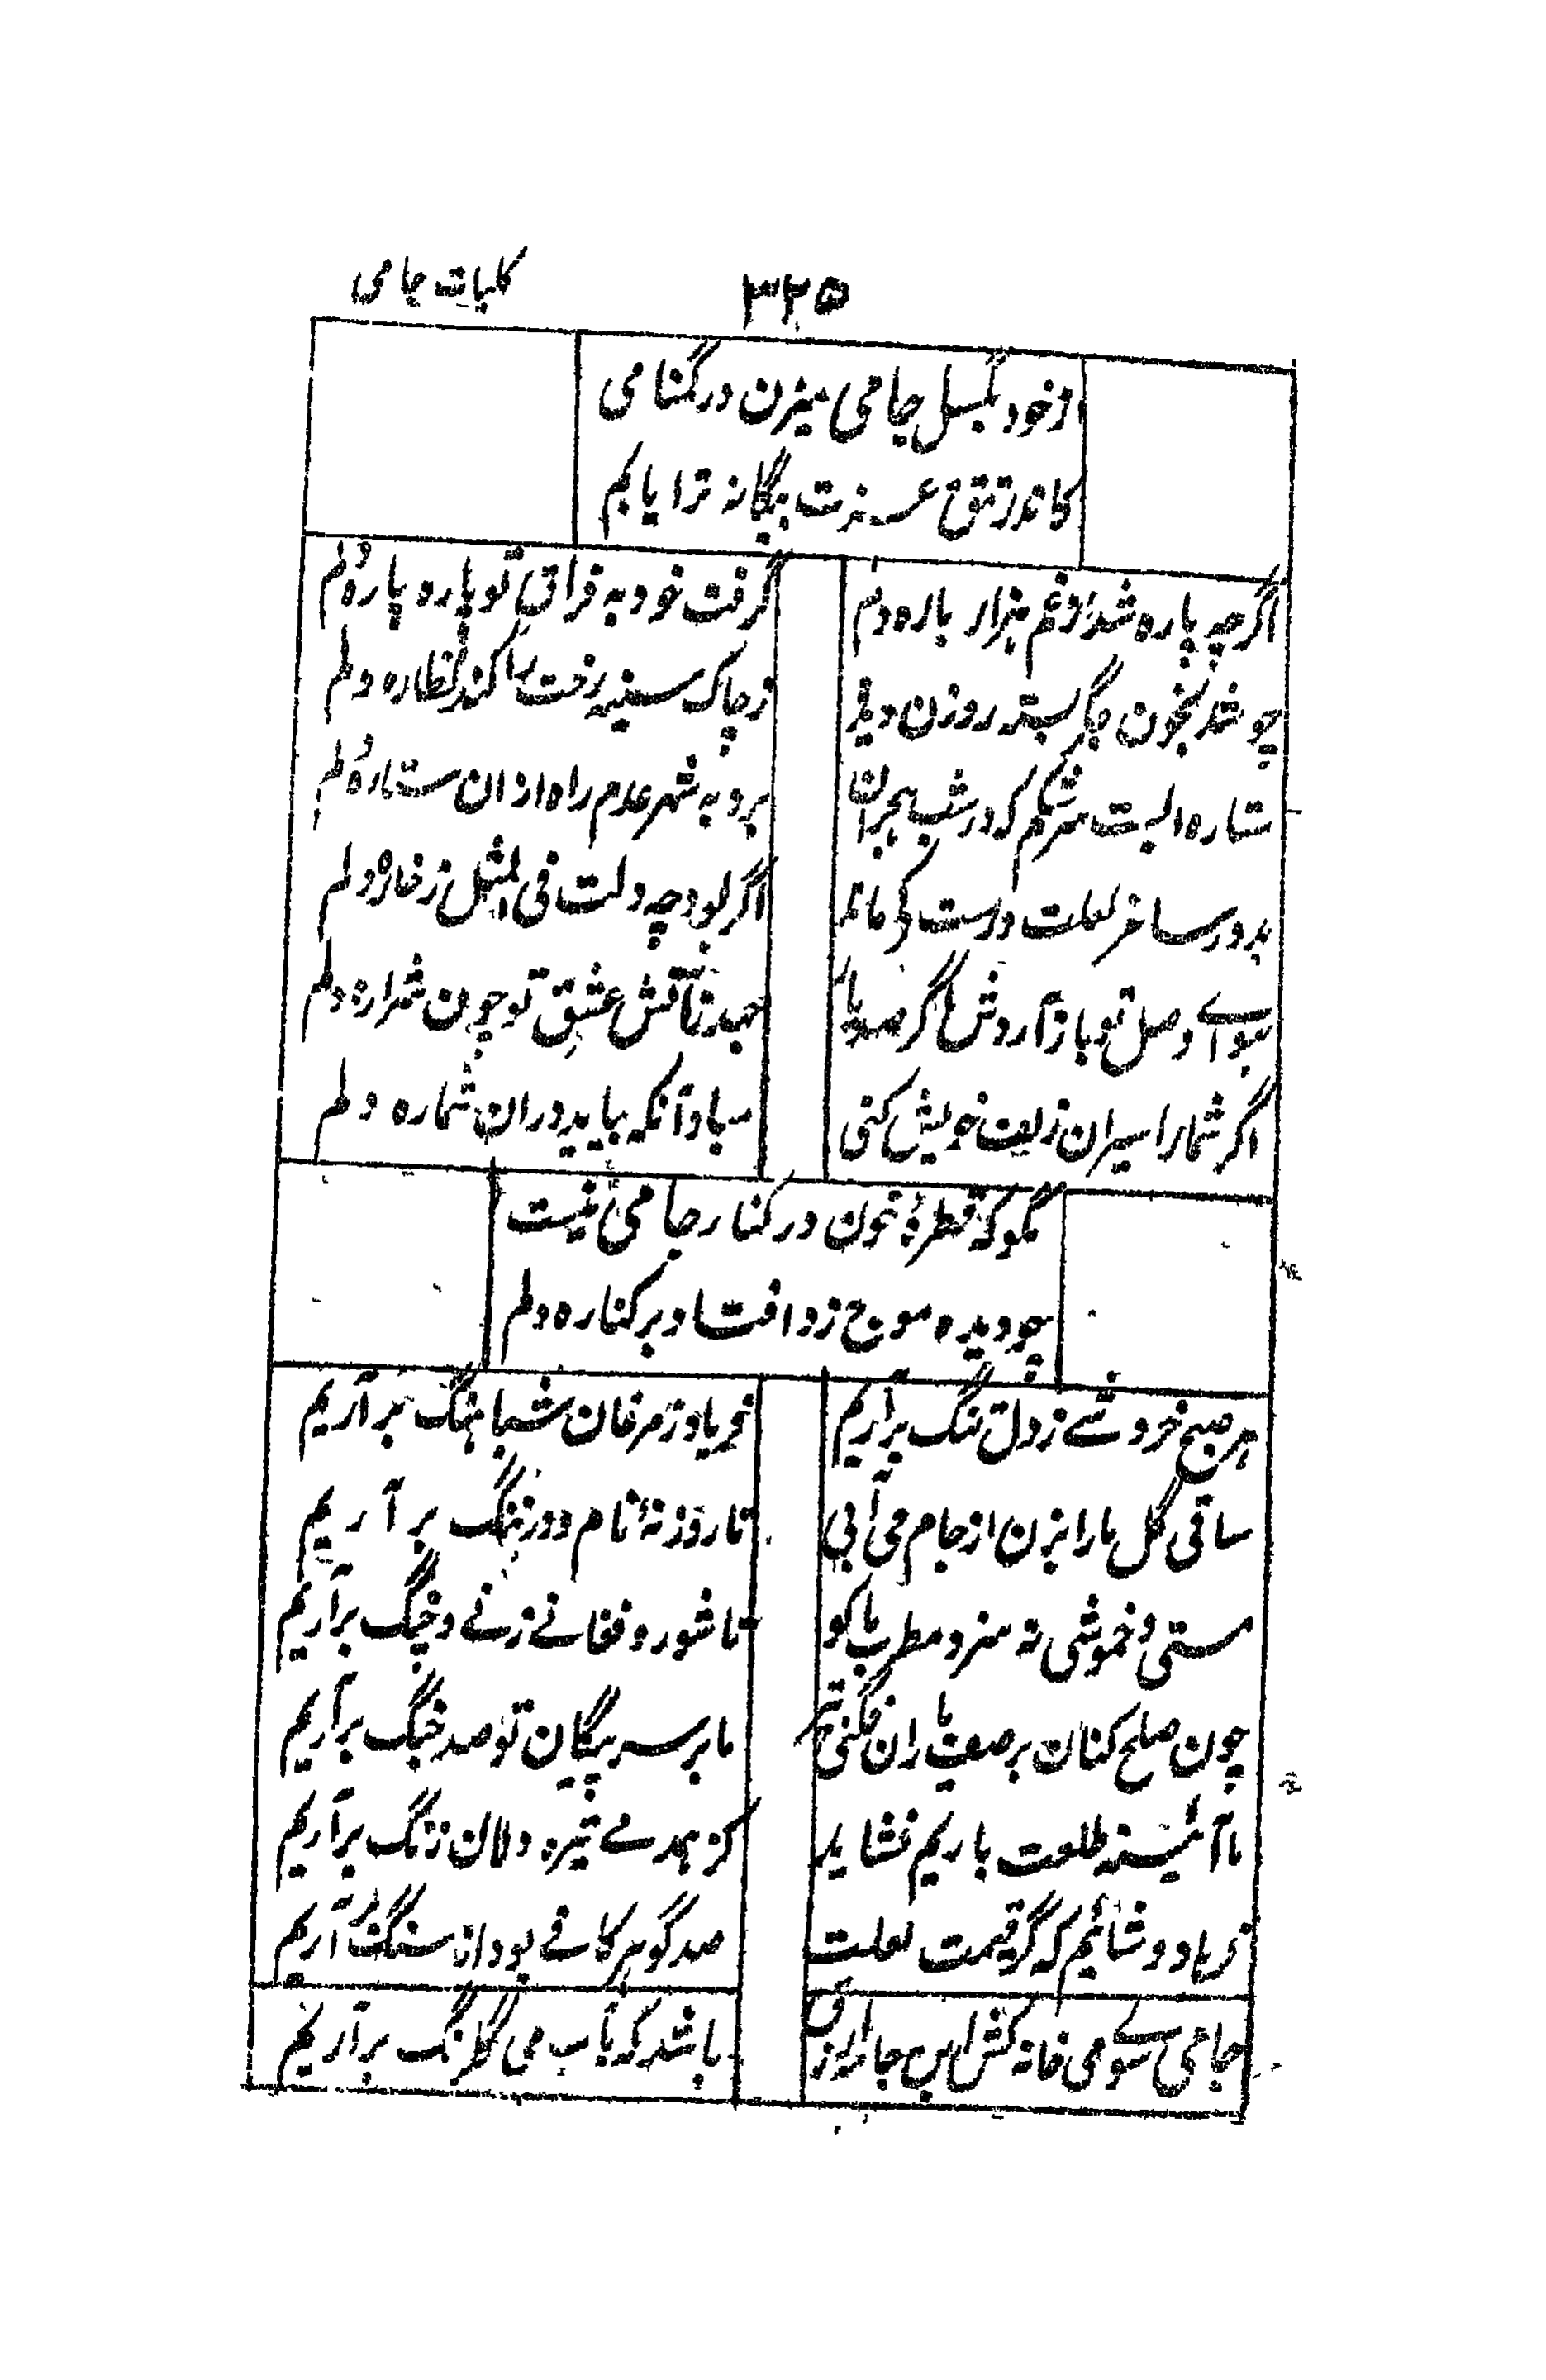 ۳۲۵
کلیات جامی
از خود بگسل جامی میزن در گمنامی
کاندر تتق عزت بیگانه ترا یابم
اگرچه پاره شد از غم هزار باره دلم
گرفت خود به فراق تو پاره پاره دلم
چو شد بخون جگر بسته روزن دیده
ز چاک سینه رخت را کند نظاره دلم
ستاره ایست سرشکم که در شب هجران
برد به شهر عدم راه ازان ستاره دلم
بدور ساغر لعلت درست کی ماند
اگر بود چه دلت فی المثل ز خاره دلم
بهوای وصل تو باز آردش اگر صد بار
جهد ز آتش عشق تو چون شراره دلم
اگر شمار اسیران زلف خویش کنی
مباد آنکه بیاید دران شماره دلم
مگو که قطرهٔ خون در کنار جامی نیست
چو دیده موج زد افتاد بر کناره دلم
هر صبح خروشے ز دل تنگ برآریم
فریاد ز مرغان شباهنگ برآریم
ساقی گل ما را بزن از جام می آبی
تا روزنهٔ نام دو رنگ برآریم
مستی و خموشی نه سزد مطرب ما کو
تا شور و فغانے ز نے و چنگ برآریم
چون صلح کنان بر صف ما ران فگنی تیر
ما بر سر پیکان تو صد جنگ برآریم
ما آئینه طلعت یاریم نشاید
کز همدمے تیره دلان زنگ برآریم
فرهاد وشانیم که گر قیمت لعلت
صد گوهر کانے بود از سنگ برآریم
جامی سوے می خانه کش این جامهٔ ازرق
باشد که بآب می گلرنگ برآریم